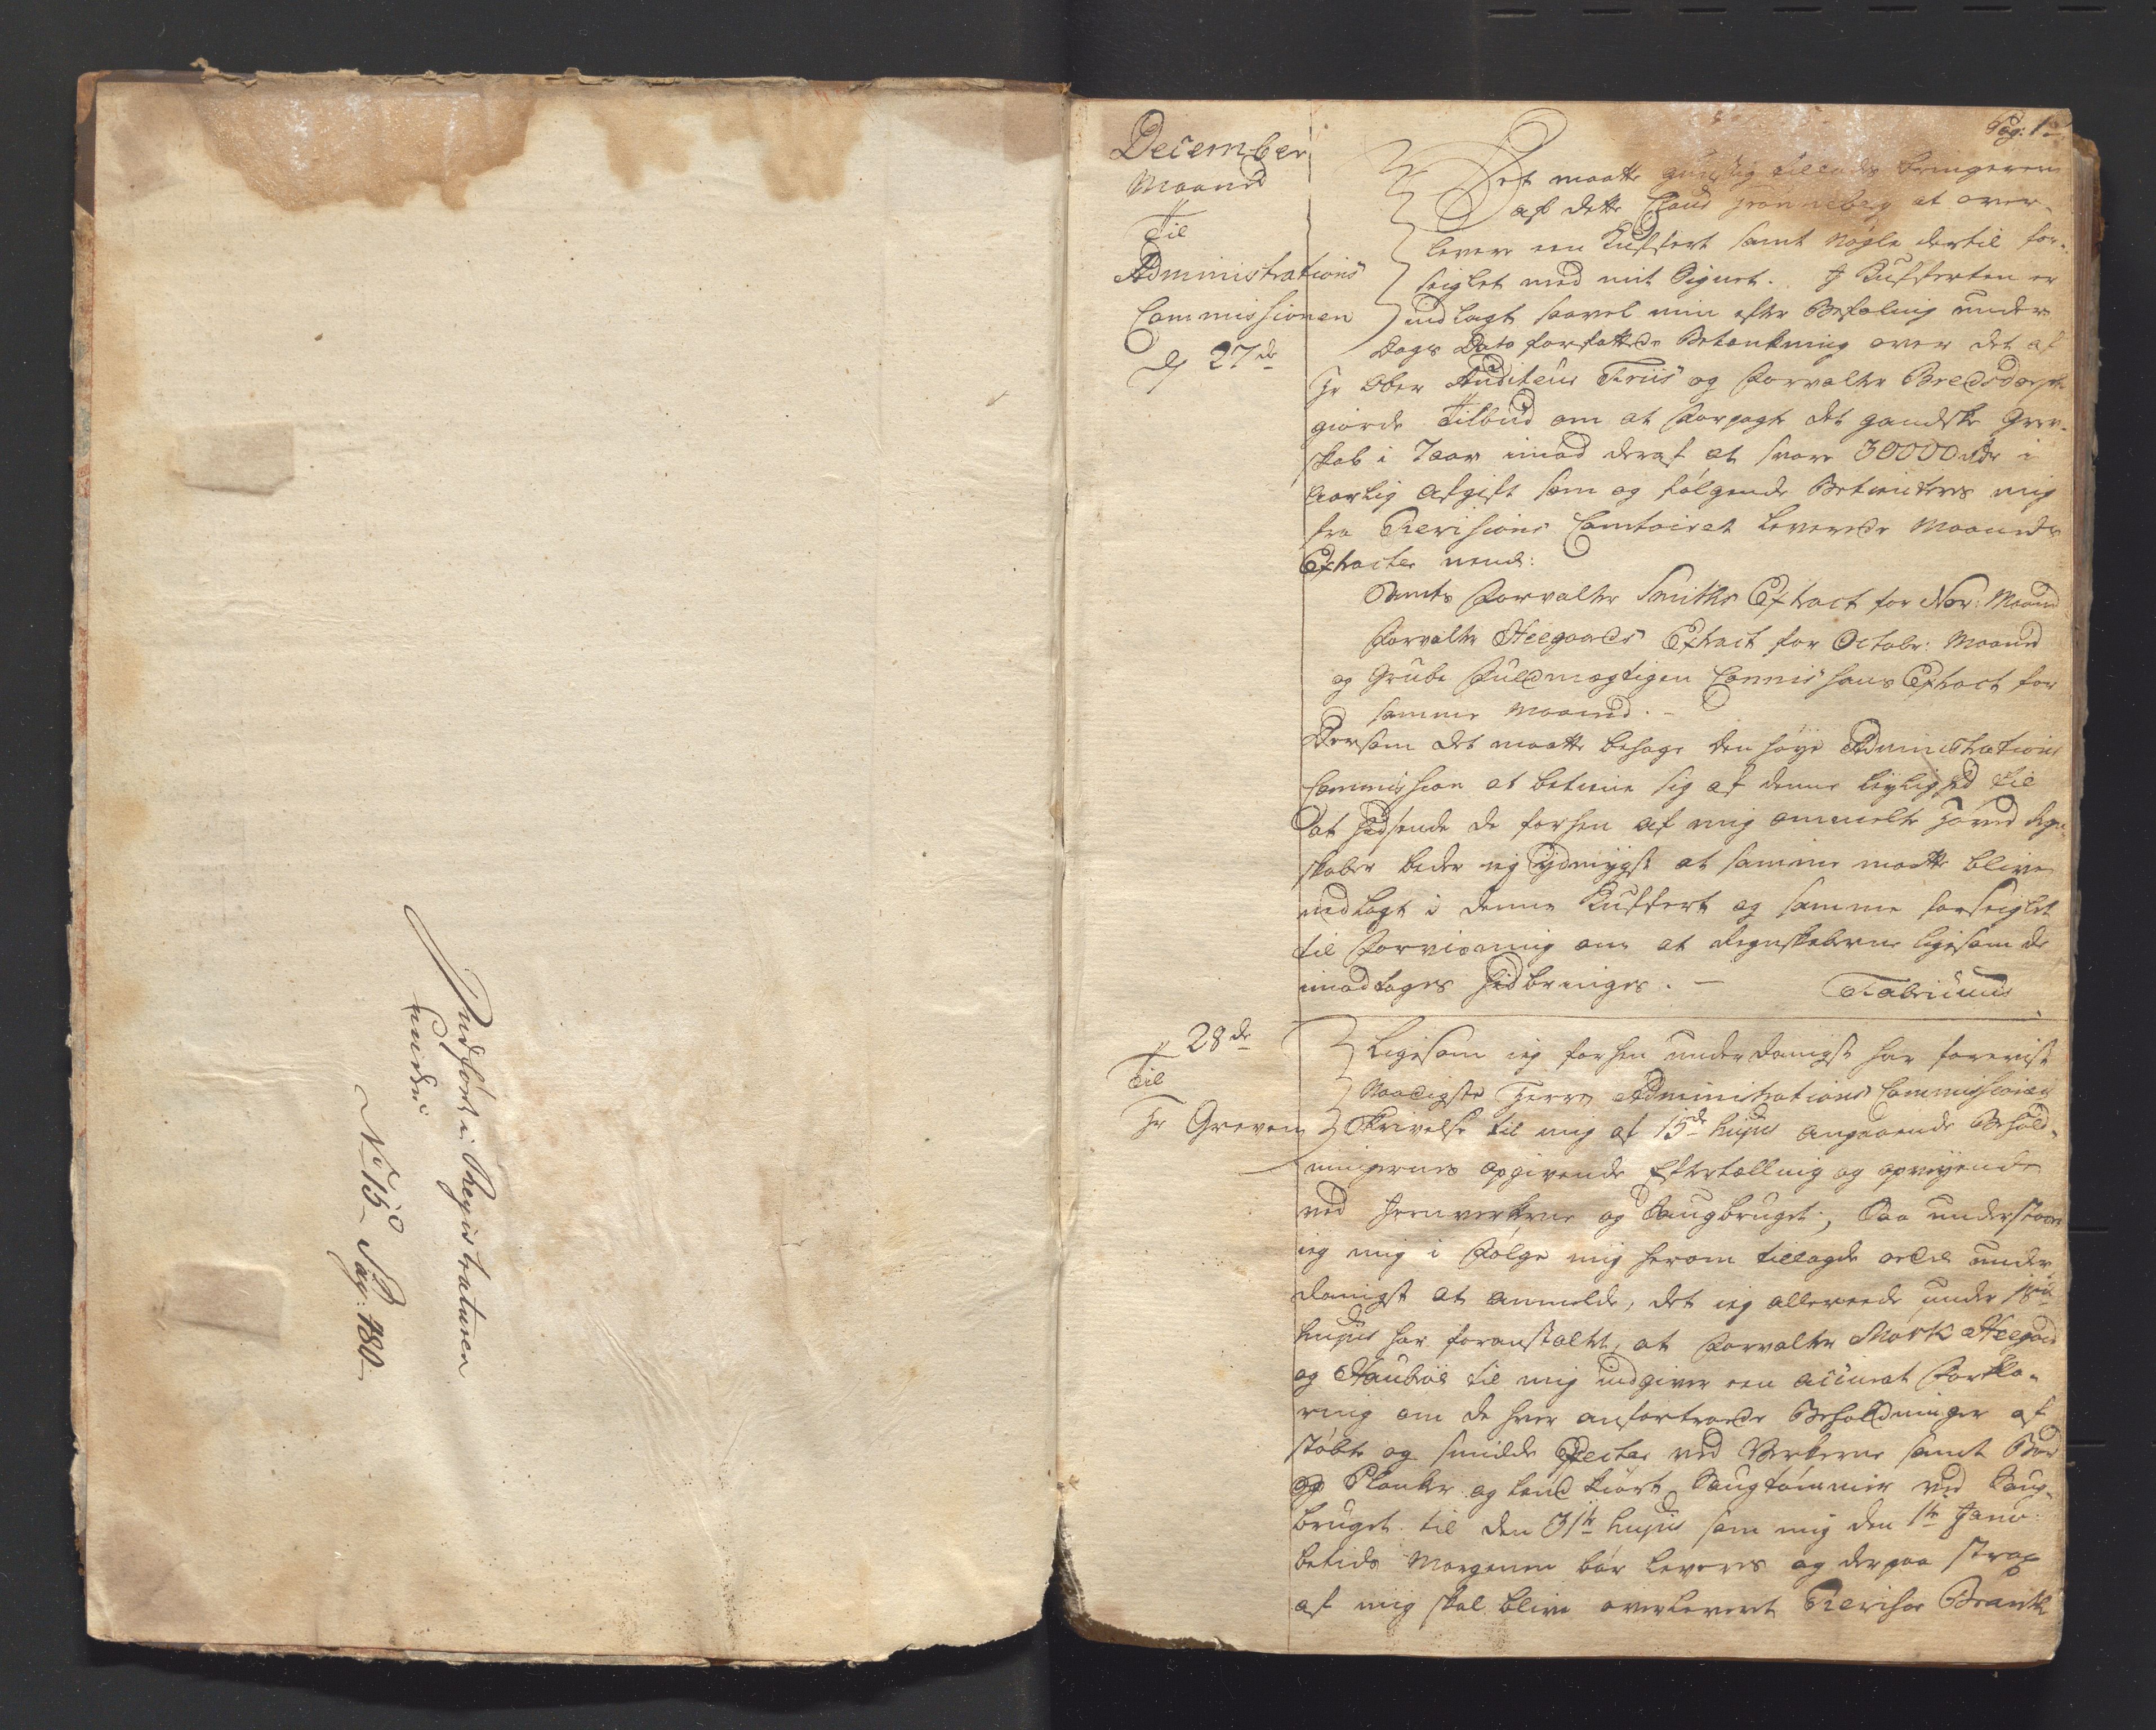 Indført i Registraturen
under
No 15 Pag: 180
Pag: 1
December
Maaned
Til
Administrations
Commissionen
d 27de
Det maatte gunstig tillades bringeren
af dette Claus Grønneberg at over-
levere een Kuffert samt Nøgle dertil for-
seiglet med mit Signet. I Kufferten er
indlagt saavel min efter Befaling under
Dags Dato forfattede Betænkning over det af
Hr Ober Auditeur Friis og Forvalter Bredsdorph
giorde Tilbud om at Forpagte det gandske Grev-
skab i 7 aar imod deraf at svare 30000 rdr i
Aarlig Afgift som og følgende Betienteres mig
fra Revisions Contoiret leverede Maaneds
Extracter nemlig:
Amts Forvalter Smiths Extract for Nov: Maaned
Forvalter Heegaards Extract for Octobr: Maaned
og Grube Fuldmægtigen Extract for
samme Maaned.-
Dersom det maatte behage den høye Administrations
Commission at betiene sig af denne Leylighed til
at hidsende de forhen af mig anmelte Hoved Regn-
skaber beder ieg ydmygst at samme maatte blive
indlagt i denne Kuffert og samme forseiglet
til Forvisning om at Regnskaberne ligesom de
imodtages hidbringes. -
Fabricius
28de
Til
Hr Greven
Ligesom ieg forhen underdanigst har foreviist
Naadigste Herre Administrations Commissionens
Skrivelse til mig af 15de hujus angaaende Behold-
ningernes opgivende Eftertælling og opveyende
ved Jernverkerne og Saugbruget; Saa understaar
ieg mig i Følge mig herom tillagde ordre under-
danigst at anmelde, det ieg allereede under
hujus har foranstaltet, at Forvalter Mørk Heegaard
og til mig indgiver een accurat Forkla-
ring om de hver anfortroede Beholdninger af
støbte og smidde Effecter ved Verkerne samt Bord
og Planker og land kiørt Saugtømmer ved Saug-
bruget til den 31te hujus som mig den 1te Janv:
betids Morgenen bør leveres og derpaa strax
af mig skal blive overleveret Revisor